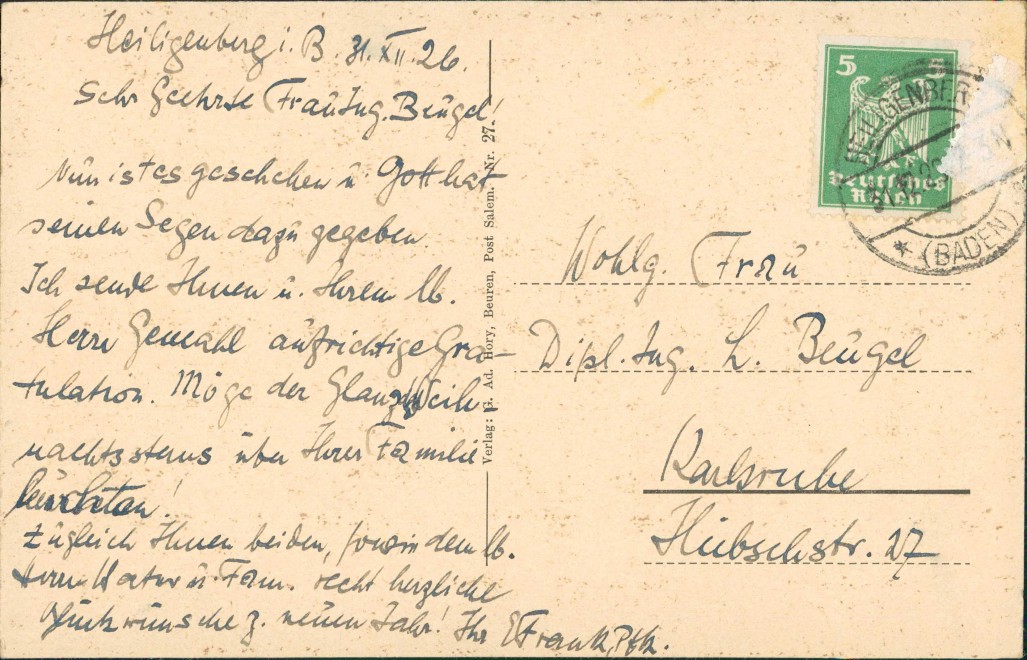 Heiligenberg i. B. 31. XII. 26.
Sehr Geehrte Frau Ing. Beugel!
Nun ist es geschehen u. Gott hat
seinen Segen dazu gegeben.
Ich sende Ihnen u. Ihrem lb.
Herrn Gemahl aufrichtige Gra-
tulation. Möge der Glanz Weih-
nachtssterns über Ihrer Familie
leuchten!
Zugleich Ihnen beiden, sowie dem lb.
Herrn u. Fam. recht herzliche
Glückwünsche z. neuen Jahr! Ihr Frank, Pfk.
Verlag: G. Ad. Hory, Beuren, Post Salem. Nr. 27.
5 5
Deutsches
Reich
HEILIGENBERG
(BADEN)
Wohlg. Frau
Dipl. Ing. L. Beugel
Karlsruhe
Hübschstr. 27